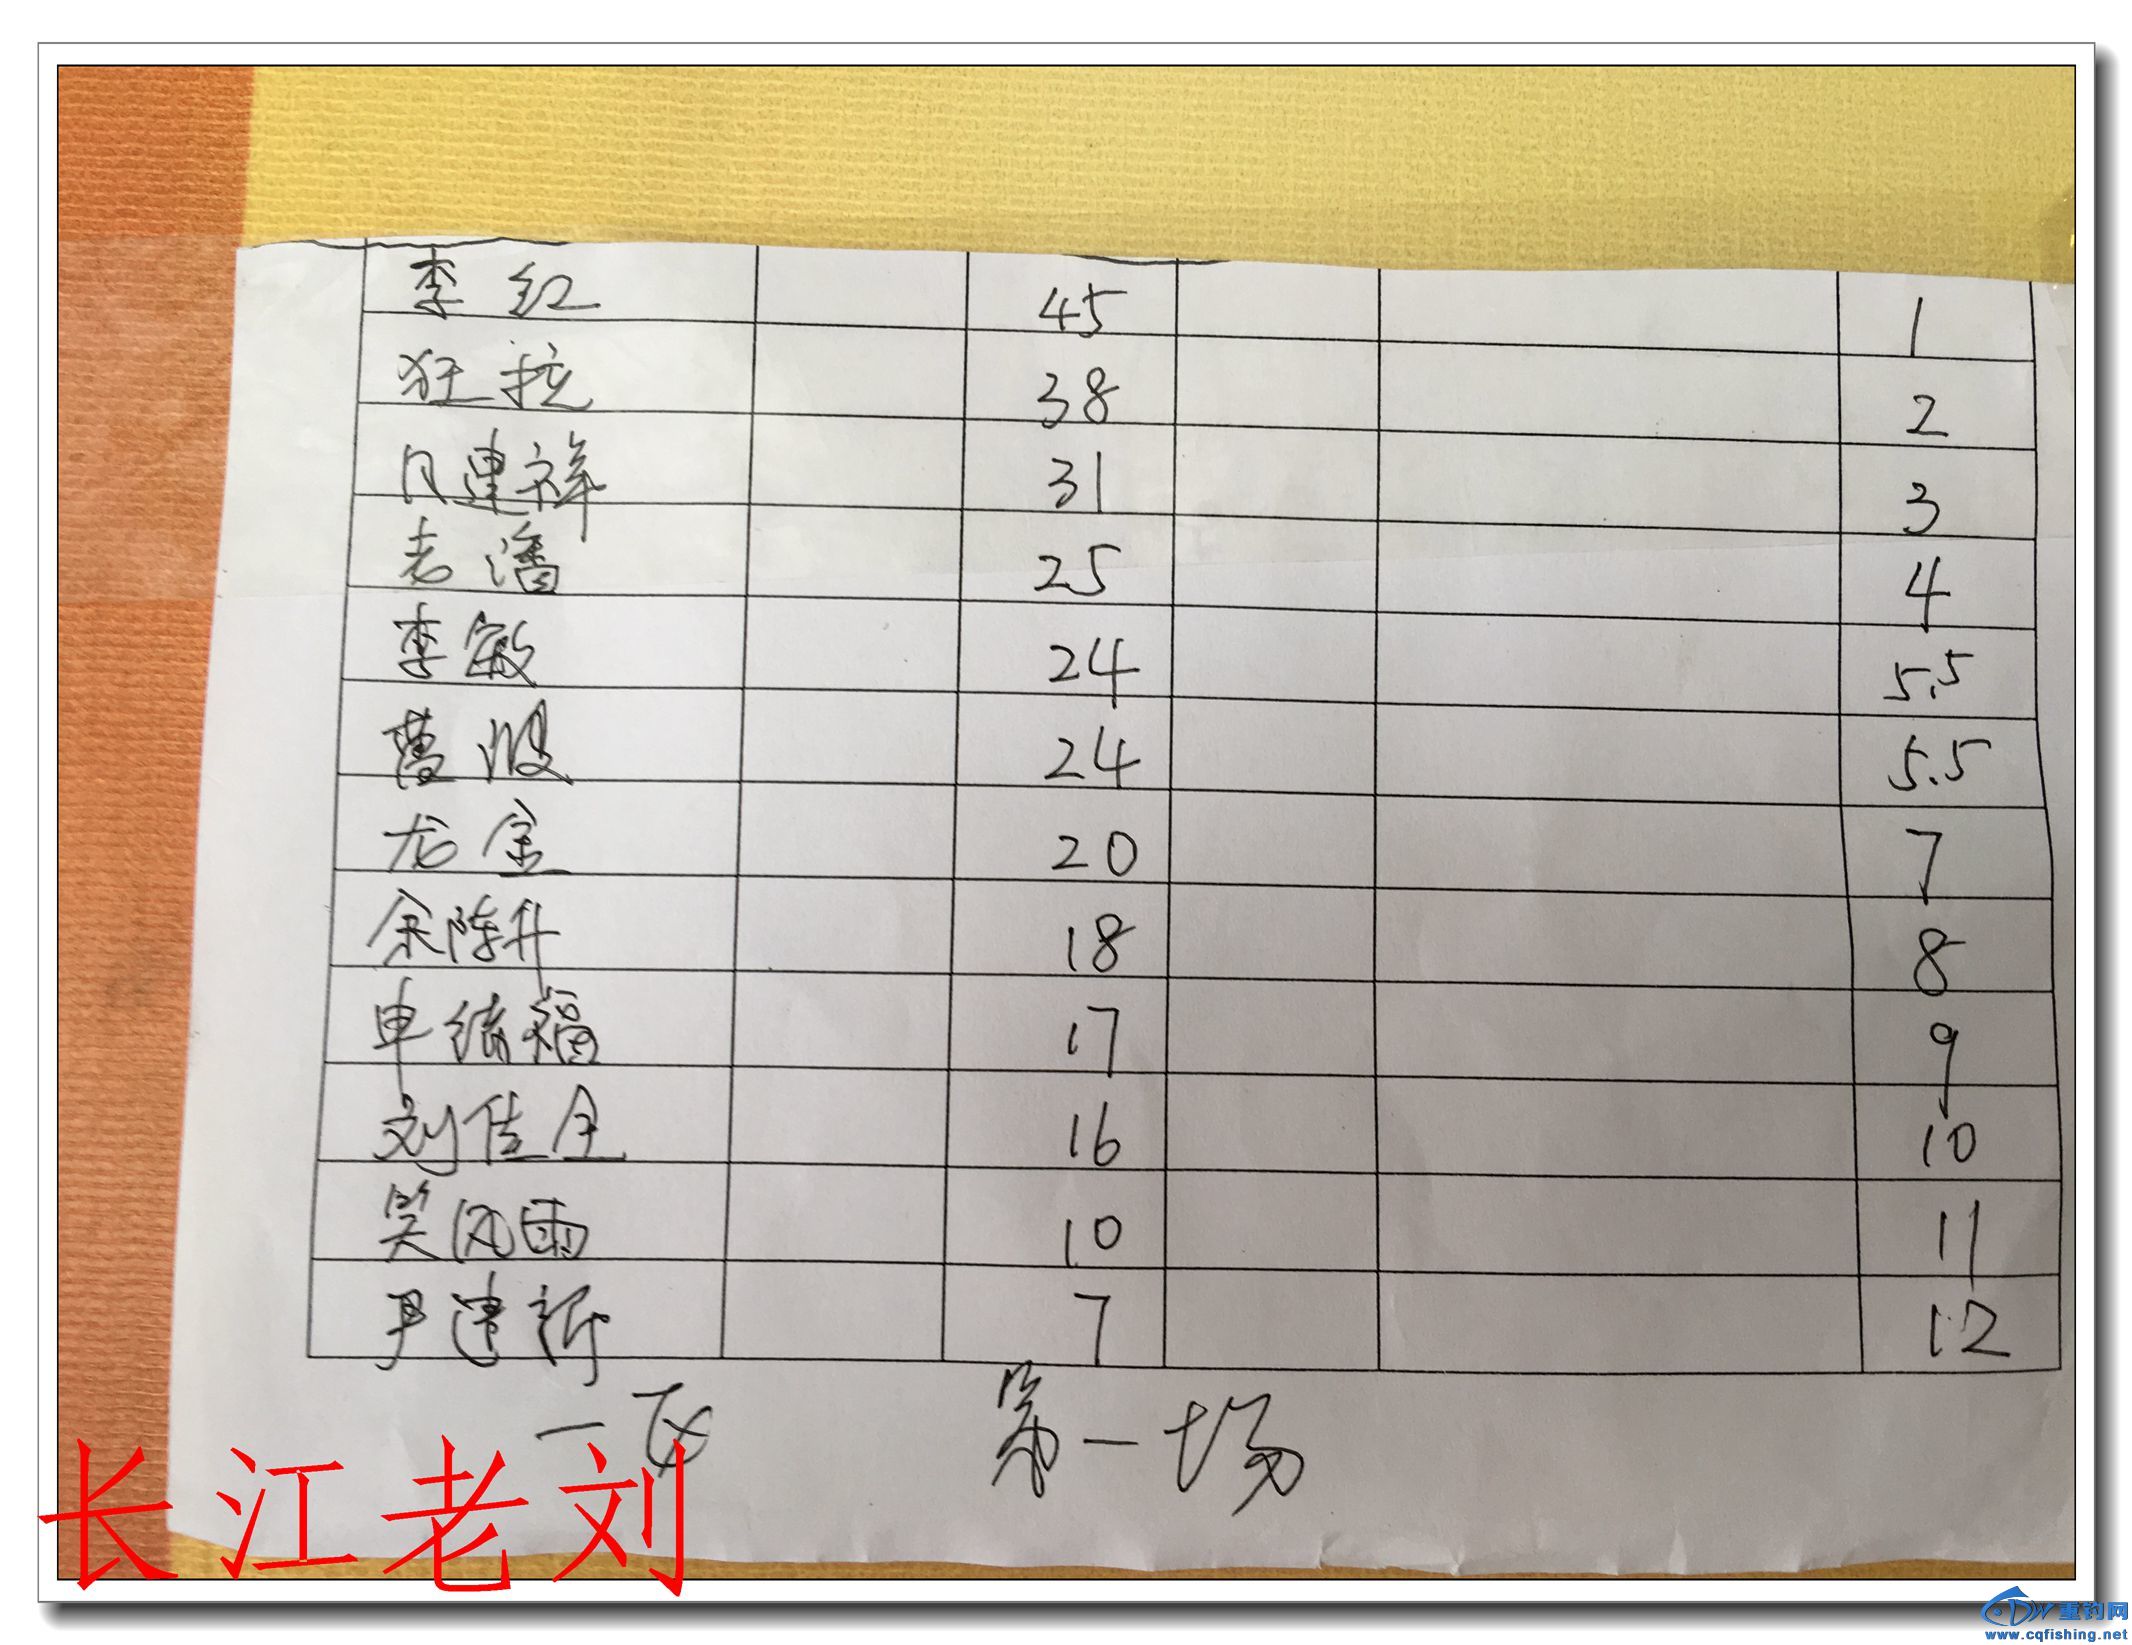 李红 45 1
狂拉 38 2
建祥 31 3
老潘 25 4
李敏 24 5.5
曹波 24 5.5
龙宝 20 7
余陈升 18 8
申继福 17 9
刘佳全 16 10
笑风雨 10 11
尹建新 7 12
一区 第一场
长江老刘
重钓网
www.cqfishing.net